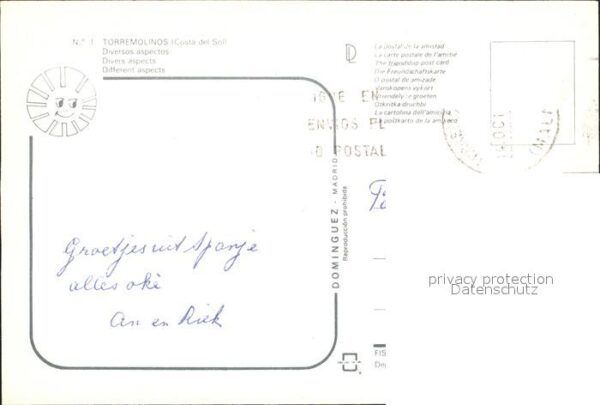 N.° 1 TORREMOLINOS (Costa del Sol)
Diversos aspectos
Divers aspects
Different aspects
La postal de la amistad
La carte postale de l'amitié
The friendship post card
Die Freundschaftskarte
O postal de amizade
Vanskapens vykort
Vriendelijke groeten
Otkritka druchbi
La cartolina dell'amicizia
La poŝtkarto de la amikeco
ENVIOS EL
POSTAL
OCT
DOMINGUEZ - MADRID
Reproducción prohibida
Groetjes uit Spanje
alles oké
An en Riek
privacy protection
Datenschutz
FIS